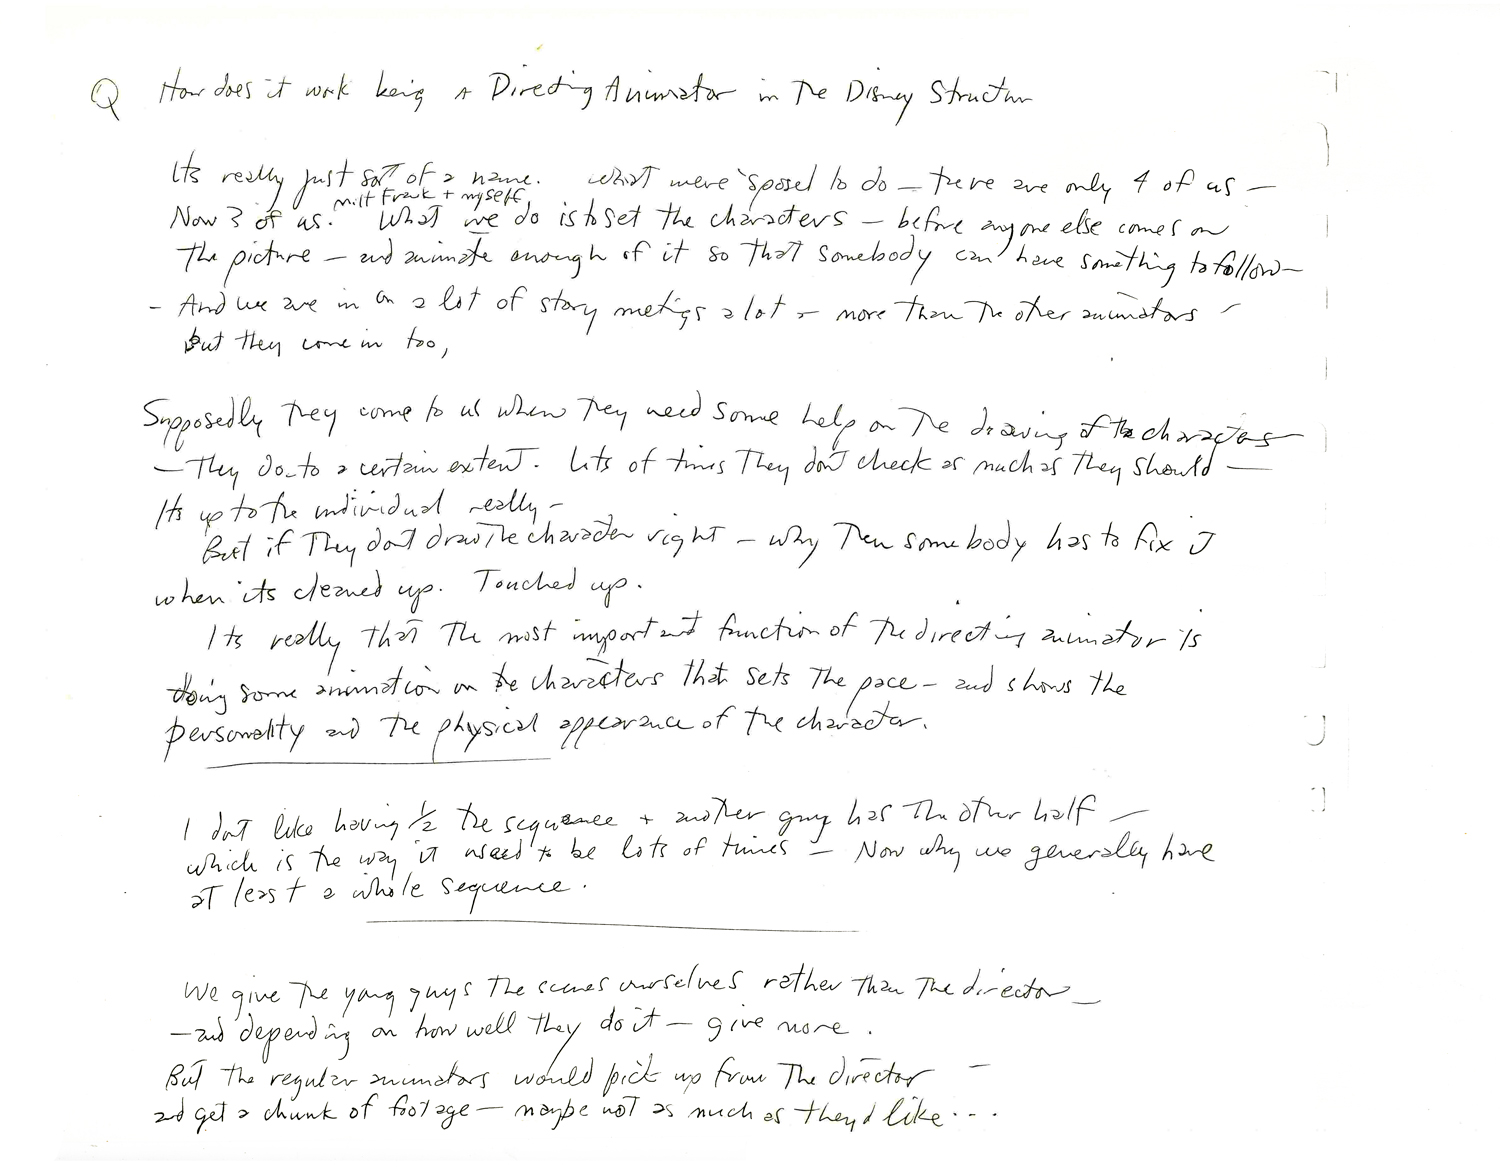 Q How does it work being A Directing Animator in The Disney Structure
Its really just sort of a name. What we're 'sposed to do — there are only 4 of us —
Milt Frank + myself
Now 3 of us. What we do is to set the characters — before anyone else comes on
The picture — and animate enough of it so that somebody can have something to follow —
- And we are in on a lot of story meetings a lot — more than The other animators —
But they come in too,
Supposedly they come to us when They need some help on The drawing of the characters —
— They do to a certain extent. Lots of times They don't check as much as They should —
Its up to the individual really —
But if They dont draw The character right — why Then somebody has to fix it
when its cleaned up. Touched up.
Its really that The most important function of The directing animator is
doing some animation on the characters that sets The pace — and shows the
personality and the physical appearance of the character.
I dont like having 1/2 the sequence + another guy has The other half —
which is the way it used to be lots of times — Now why we generally have
at least a whole sequence.
We give The young guys The scenes ourselves rather than The director —
— and depending on how well They do it — give more.
But The regular animators would pick up from The director —
and get a chunk of footage — maybe not as much as they'd like...